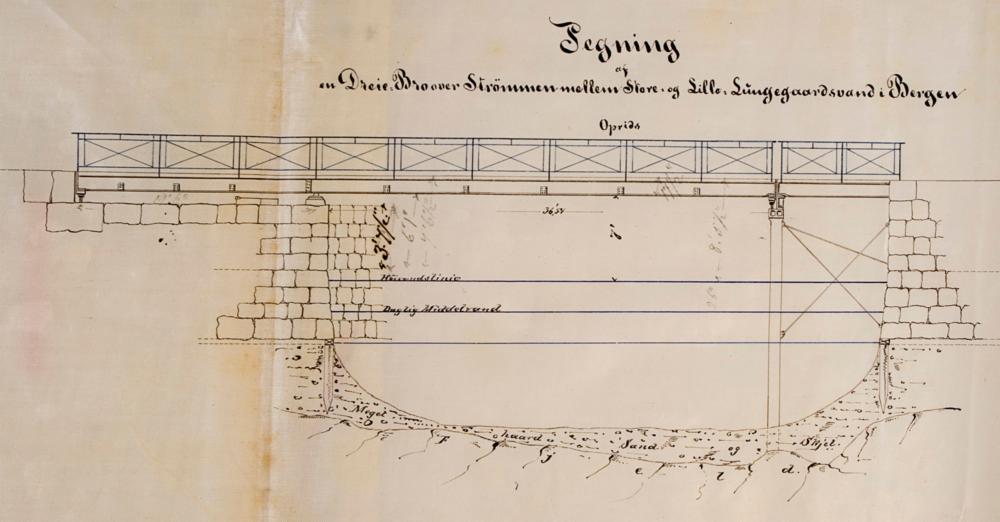 Tegning
af
en Dreie-Bro over Strömmen mellem Store- og Lille- Lungegaardsvand i Bergen
Oprids
36,5v
3' 7½"
Höivandslinie
Daglig Middelvand
Meget haard Sand og Skjel
F j e l d.